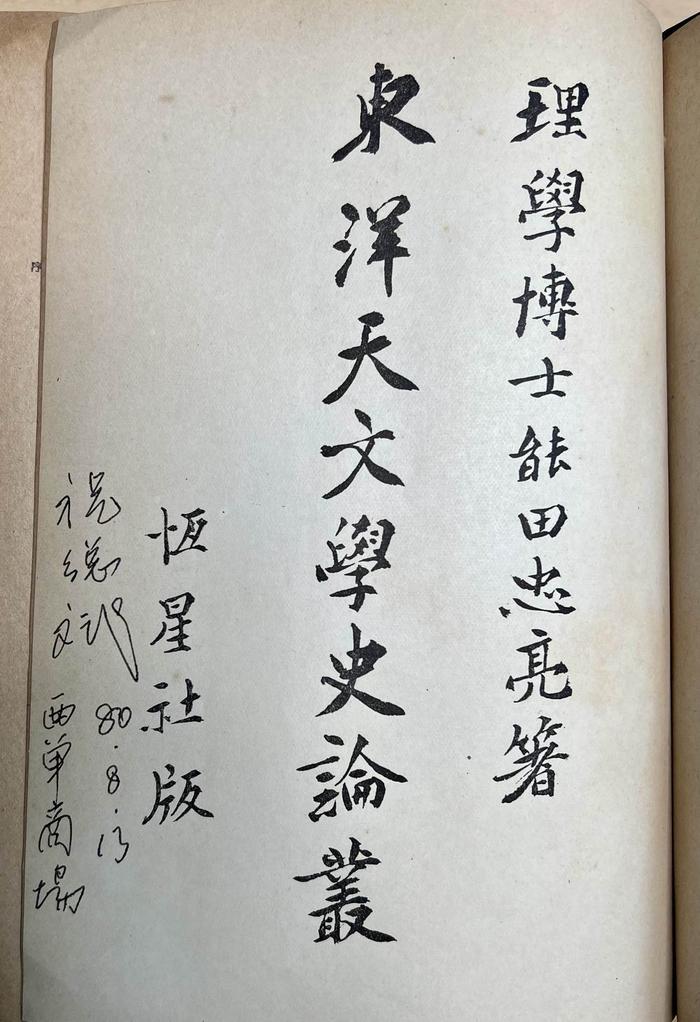 理學博士能田忠亮著
東洋天文學史論叢
恒星社版
祝總斌
80.8.13
西单商場
序